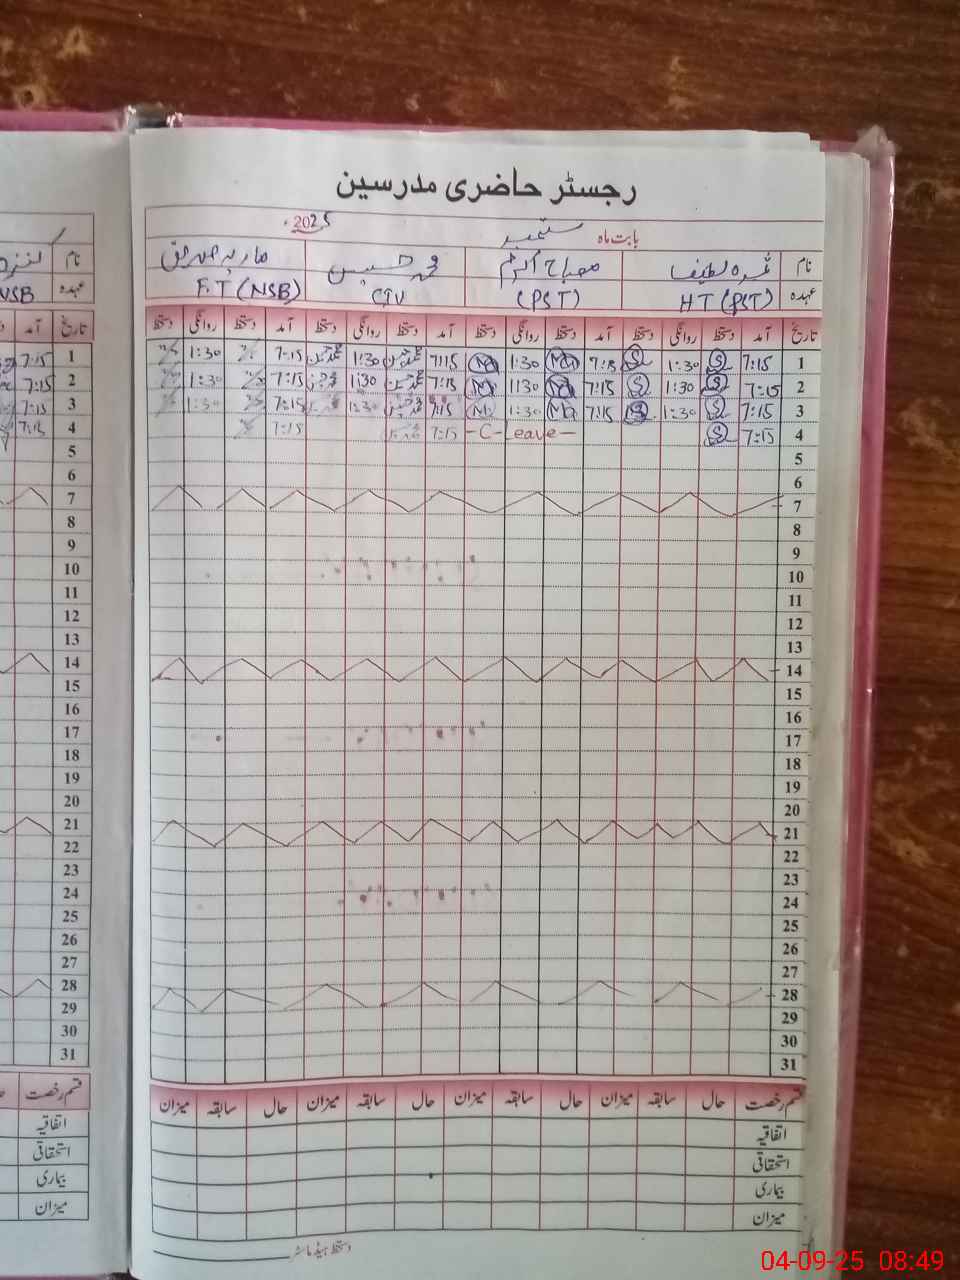 رجسٹر حاضری مدرسین
بابت ماہ ستمبر 2025ء
نام
عہدہ HT (PST) (PST) CTV F.T (NSB)
تاریخ آمد دستخط روانگی دستخط آمد دستخط روانگی دستخط آمد دستخط روانگی دستخط آمد دستخط روانگی دستخط
1 7:15 1:30 7:15 1:30 7:15 1:30 7:15 1:30
2 7:15 1:30 7:15 1:30 7:15 1:30 7:15 1:30
3 7:15 1:30 7:15 1:30 7:15 1:30 7:15 1:30
4 7:15 -C-Leave- 7:15 7:15
5
6
7
8
9
10
11
12
13
14
15
16
17
18
19
20
21
22
23
24
25
26
27
28
29
30
31
قسم رخصت حال سابقہ میزان حال سابقہ میزان حال سابقہ میزان حال سابقہ میزان
اتفاقیہ
استحقاقی
بیماری
میزان
دستخط ہیڈ ماسٹر
نام
عہدہ NSB
تاریخ آمد
1 7:15
2 7:15
3 7:15
4 7:15
5
6
7
8
9
10
11
12
13
14
15
16
17
18
19
20
21
22
23
24
25
26
27
28
29
30
31
قسم رخصت
اتفاقیہ
استحقاقی
بیماری
میزان
04-09-25 08:49